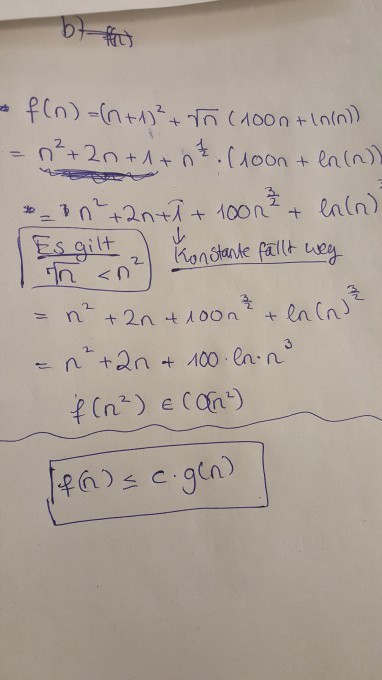 b) f(n)
• f(n) = (n+1)² + √n (100n + ln(n))
= n² + 2n + 1 + n^½ · (100n + ln(n))
= n² + 2n + 1 + 100n^(3/2) + ln(n)
Es gilt
√n < n²
↓
Konstante fällt weg
= n² + 2n + 100n^(3/2) + ln(n)^(3/2)
= n² + 2n + 100 · ln · n³
f(n²) ∈ (O(n²)
f(n) ≤ c · g(n)